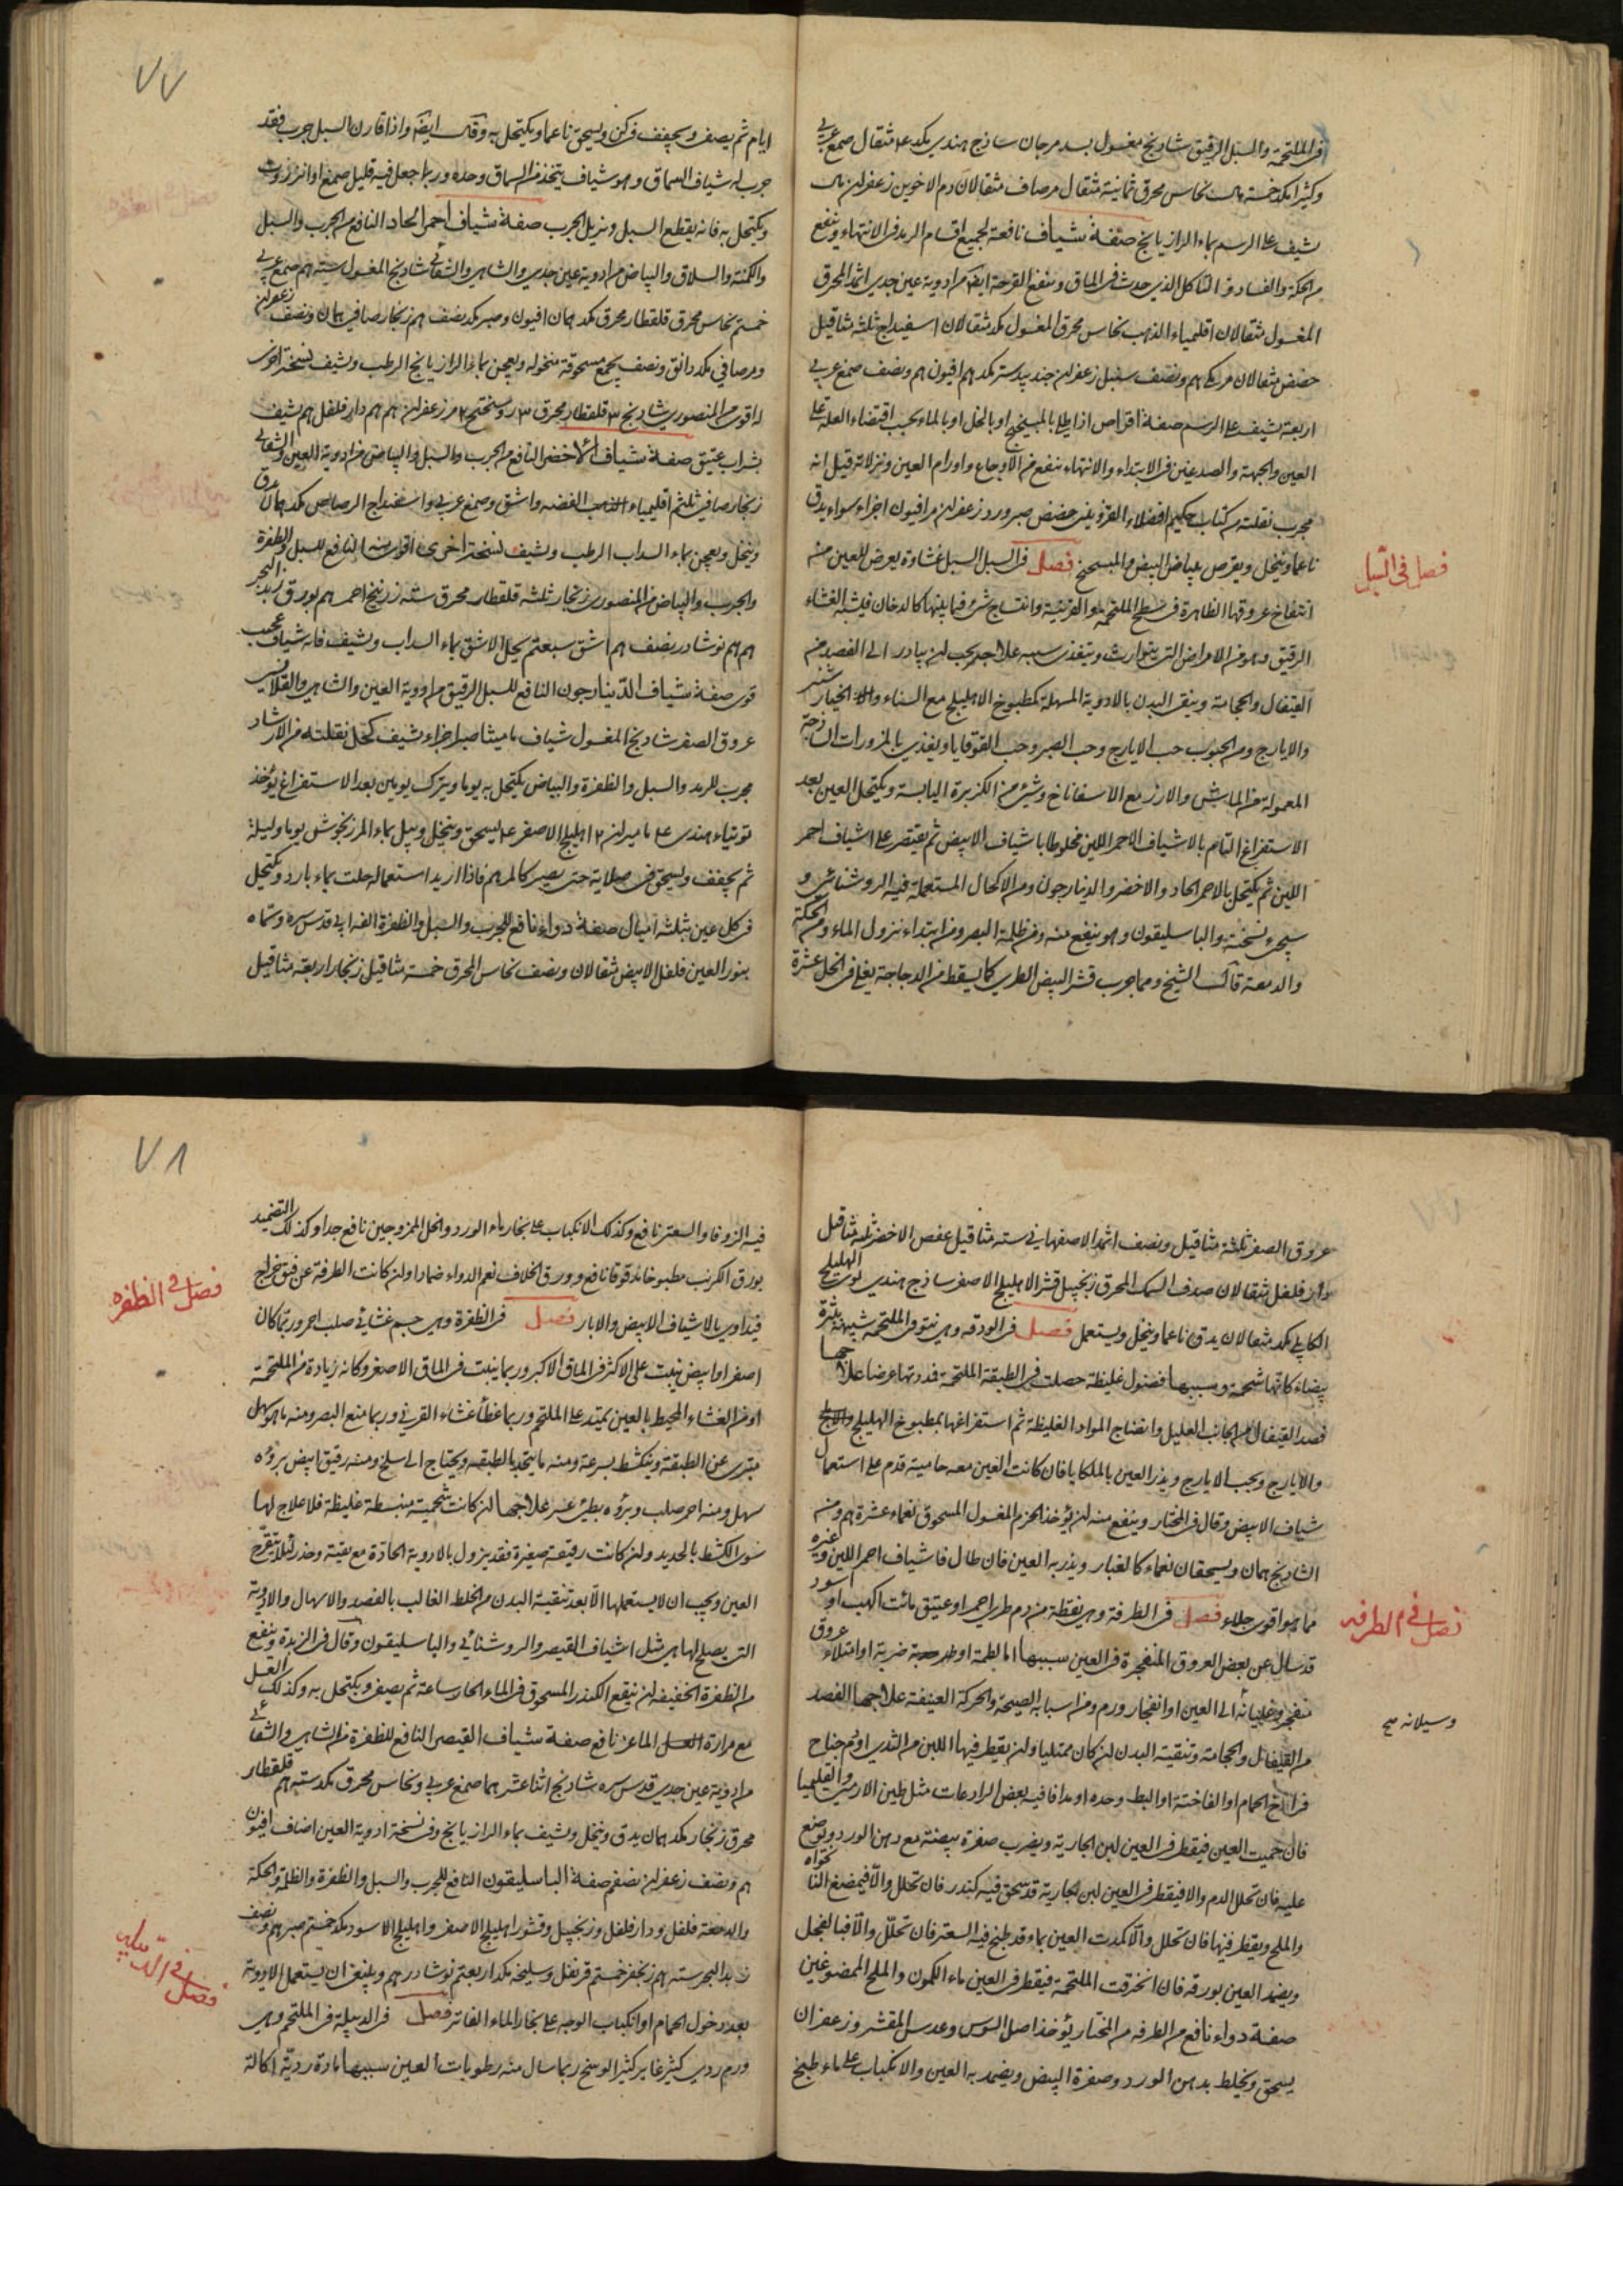 في الملتحمة والسبل الرقيق شاذنج مغسول بسد مرجان ساذج هندي مكد مثقال صمغ عربي
وكثيرا مكد خمسة نحاس محرق ثمانية مثقال مر صاف مثقالان دم الاخوين زعفران
يشيف على الرسم بماء الرازيانج صفة شياف نافعة لجميع اقسام الرمد في الانتهاء وينفع
من الحكة والفساد والتاكل الذي حدث في الماق وينفع القرحة ايضا من ادوية عين جدي اثمد المحرق
المغسول مثقالان اقليمياء الذهب نحاس محرق المغسول مكد مثقالان اسفيداج ثلثة مثاقيل
حضض مثقالان مر مكي ونصف سنبل زعفران جندبيدستر مكد افيون ونصف صمغ عربي
اربعة يشيف على الرسم صفة اقراص اذا طلي بالميبختج او بالخل او بالماء بحسب اقتضاء العلة على
العين والجبهة والصدغين في الابتداء والانتهاء ينفع من الاوجاع واورام العين ونزلاته قيل انه
مجرب نقلته من كتاب حكيم افضلاء القزويني حضض صبر ورد زعفران مر افيون اجزاء سواء يدق
ناعما وينخل ويقرص ببياض البيض والميبختج فصل في السبل السبل غشاوة يعرض للعين من
فصل في السبل
انتفاخ عروقها الظاهرة في سطح الملتحمة والقرنية وانتساج شئ فيما بينها كالدخان فيشبه الغشاء
الرقيق وهو من الامراض التي يتوارث ويتغذى سببه علاجه يجب ان يبادر الى الفصد من
القيفال والحجامة وينقى البدن بالادوية المسهلة كمطبوخ الاهليلج مع السناء والخيار شنبر
والايارج ومن الحبوب حب الايارج وحب الصبر وحب القوقايا ويغذى بالمزورات الساذجة
المعمولة من الماش والارز مع الاسفاناخ وشئ من الكزبرة اليابسة ويكتحل العين بعد
الاستفراغ التام بالاشياف الاحمر اللين مخلوطا باشياف الابيض ثم يقتصر على اشياف احمر
اللين ثم يكتحل بالاحمر الحاد والاخضر والدينارجون ومن الاكحال المستعملة فيه الروشنائي و
سيجيء نسخته والباسليقون وهو ينفع منه ومن ظلمة البصر ومن ابتداء نزول الماء ومن الحكة
والدمعة قال الشيخ ومما جرب قشر البيض الطري كما يسقط من الدجاجة يغلى في الخل عشرة
٧٧
ايام ثم يصفى ويجفف في كن ويسحق ناعما ويكتحل به وقال ايضا واذا قارن السبل جرب فقد
جرب له شياف السماق وهو شياف يتخذ من السماق وحده وربما جعل فيه قليل صمغ او انزروت
ويكتحل به فانه يقطع السبل ويزيل الجرب صفة شياف احمر الحاد النافع من الجرب والسبل
والكمنة والسلاق والبياض من ادوية عين جدي والشاهي والشفائي شاذنج المغسول ستة صمغ عربي
خمسة نحاس محرق قلقطار محرق مكد افيون وصبر مكد نصف زنجار صافي ونصف زعفران
ومر صافي مكد دانق ونصف يجمع مسحوقة منخولة ويعجن بماء الرازيانج الرطب ويشيف نسخة اخرى
له اقوى من المنصوري شاذنج ٣ قلقطار محرق ٣ روسختج ٢ مر زعفران دار فلفل يشيف
بشراب عتيق صفة شياف الاخضر النافع من الجرب والسبل والبياض من ادوية العين والشفائي
زنجار صافي ثلثة اقليمياء الفضة واشق وصمغ عربي واسفيداج الرصاص مكد يدق
وينخل ويعجن بماء السداب الرطب ويشيف نسخة اخرى اقوى منه النافع للسبل والظفرة
والجرب والبياض من المنصوري زنجار ثلثة قلقطار محرق ستة زرنيخ احمر بورق زبد البحر
نوشادر نصف اشق سبعة يحل الاشق بماء السداب ويشيف فانه شياف عجيب
قوي صفة شياف الدينارجون النافع للسبل الرقيق من ادوية العين والشاهي والقلانسي
عروق الصفر شاذنج المغسول شياف ماميثا صبر اجزاء يشيف كحل نقلته من الارشاد
مجرب للرمد والسبل والظفرة والبياض يكتحل به يوما ويترك يومين بعد الاستفراغ يؤخذ
توتياء هندي ماميران اهليلج الاصفر يسحق وينخل ويبل بماء المرزنجوش يوما وليلة
ثم يجفف ويسحق في صلاية حتى يصير كالمرهم فاذا اريد استعماله حلت بماء بارد ويكتحل
في كل عين بثلثة اميال صفة دواء نافع للجرب والسبل والظفرة الفه ابي قدس سره وسماه
بنور العين فلفل الابيض مثقالان ونصف نحاس المحرق خمسة مثاقيل زنجار اربعة مثاقيل
عروق الصفر ثلثة مثاقيل ونصف اثمد الاصفهاني ستة مثاقيل عفص الاخضر ثلثة مثاقيل
دار فلفل مثقالان صدف السمك المحرق زنجبيل قشر الاهليلج الاصفر ساذج هندي الهليلج
الكابلي مكد مثقالان يدق ناعما وينخل ويستعمل فصل في الودقة وهي نتو في الملتحمة شبيهة بثرة
بيضاء كانها شحمة وسببها فضول غليظة حصلت في الطبقة الملتحمة فمددتها عرضا علاجها
فصد القيفال من الجانب العليل وانضاج المواد الغليظة ثم استفراغها بمطبوخ الهليلج
والايارج وبحب الايارج ويذر العين بالملكايا فان كانت العين معه حامية قدم على استعمال
شياف الابيض وقال في المختار وينفع منه ان يؤخذ الخزم المغسول المسحوق نعماء عشرة ومن
الشاذنج ويسحقان نعماء كالغبار ويذر به العين فان طال فاشياف احمر اللين وغيره
مما هو اقوى جلاء فصل في الطرفة وهي نقطة من دم طري احمر او عتيق مائت اكهب او اسود
فصل في الطرفه
قد سال عن بعض العروق المنفجرة في العين سببها اما لطمة او ضربة او امتلاء عروق
منفجر وغليانه الى العين او انفجار ورم ومن اسبابه الصيحة والحركة العنيفة علاجها الفصد
وسيلانه صح
من القيفال والحجامة وتنقية البدن ان كان ممتليا وان يقطر فيها اللبن من الثدي او دم جناح
فراخ الحمام او الفاختة او البط وحده او مدافا فيه بعض الرادعات مثل طين الارمني والقليميا
فان حميت العين فيقطر في العين لبن الجارية ويضرب صفرة بيضة مع دهن الورد ويوضع
عليه فان تحلل الدم والا فيقطر في العين لبن الجارية قد سحق فيه كندر فان تحلل والا فيمضغ النانخواه
والملح ويقطر فيها فان تحلل والا كمدت العين بماء قد طبخ فيه السعتر فان تحلل والا فبالفجل
ويضمد العين بورقه فان انخرقت الملتحمة فيقطر في العين ماء الكمون والملح الممضوغين
صفة دواء نافع من الطرفه من المختار يؤخذ اصل السوس وعدس المقشر وزعفران
يسحق ويخلط بدهن الورد وصفرة البيض ويضمد به العين والانكباب على ماء طبخ
٧٨
فيه الزوفا والسعتر نافع وكذلك الانكباب على بخار ماء الورد والخل الممزوجين نافع جدا وكذلك التضميد
بورق الكرنب مطبوخا مدقوقا نافع وورق الخلاف نعم الدواء ضمادا وان كانت الطرفة عن فتق خراج
فيداوي بالاشياف الابيض والابار فصل في الظفرة وهي جسم غشائي صلب احمر وربما كان
فصل في الظفره
اصفر او ابيض ينبت على الاكثر في الماق الاكبر وربما ينبت في الماق الاصغر وكانه زيادة من الملتحمة
او من الغشاء المحيط بالعين يمتد على الملتحم وربما غطأ غشاء القرني وربما منع البصر ومنه ما هو سهل
متبري عن الطبقة وينكشط بسرعة ومنه ما يتحد بالطبقة ويحتاج الى سلخ ومنه رقيق ابيض بروءه
سهل ومنه احمر صلب وبروءه بطئ عسر علاجها ان كانت شحمية منبسطة غليظة فلا علاج لها
سوى الكشط بالحديد وان كانت رقيقة صغيرة فقد يزول بالادوية الحادة مع تقية وحذر لئلا يتقرح
العين ويجب ان لا يستعملها الا بعد تنقية البدن من الخلط الغالب بالفصد والاسهال والادوية
التي يصلح لها هي مثل اشياف القيصر والروشنائي والباسليقون وقال في الزبدة وينفع
من الظفرة الخفيفة ان ينقع الكندر المسحوق في الماء الحار ساعة ثم يصفى ويكتحل به وكذلك العسل
مع مرارة الماعز نافع صفة شياف القيصر النافع للظفرة من الشاهي والشفائي
من ادوية عين جدي قدس سره شاذنج اثنا عشر صمغ عربي ونحاس محرق مكد ستة قلقطار
محرق زنجار مكد يدق وينخل ويشيف بماء الرازيانج وفي نسخة ادوية العين اضاف افيون
ونصف زعفران نصف صفة الباسليقون النافع للجرب والسبل والظفرة والظلمة والحكة
والدمعة فلفل ودار فلفل وزنجبيل وقشور اهليلج الاصفر واهليلج الاسود مكد خمسة صبر ونصف
زبد البحر ستة زنجفر خمسة قرنفل وسليخه مكد اربعة نوشادر وينبغي ان يستعمل الادوية
بعد دخول الحمام او انكباب الوجه على بخار الماء الفاتر فصل في الدبيلة في الملتحم وهي
فصل في الدبيله
ورم ردي كثير غاير كثير الوسخ ربما سال منه رطوبات العين سببها مادة ردية اكالة